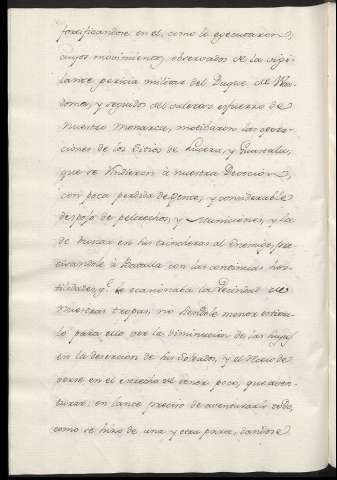 fortificandose en el, como lo egecutaron;
cuyos movimientos, observados de la vigi-
lante pericia militar del Duque de Van-
doma, y seguidos del valeroso esfuerzo de
nuestro Monarca, motibaron las opera-
ciones de los Sitios de Luzera, y Guastala,
que se Rindieron à nuestra Devocion,
con poca perdida de Gente, y considerable
despojo de peltrechos, y Municiones, y la
de buscar en sus trincheras al Enemigo,
à Batalla con las continuas hos-
tilidades, q.e le ocasionaba la Vecindad de
nuestras tropas, no siendole menor estimu-
lo para ello ver la diminucion de las suyas
en la desercion de sus Soldados, y el
verse en el estrecho de tener poco, que aven-
turar; en lance preciso de aventurarlo todo,
como se hizo de una y otra parte, dandose